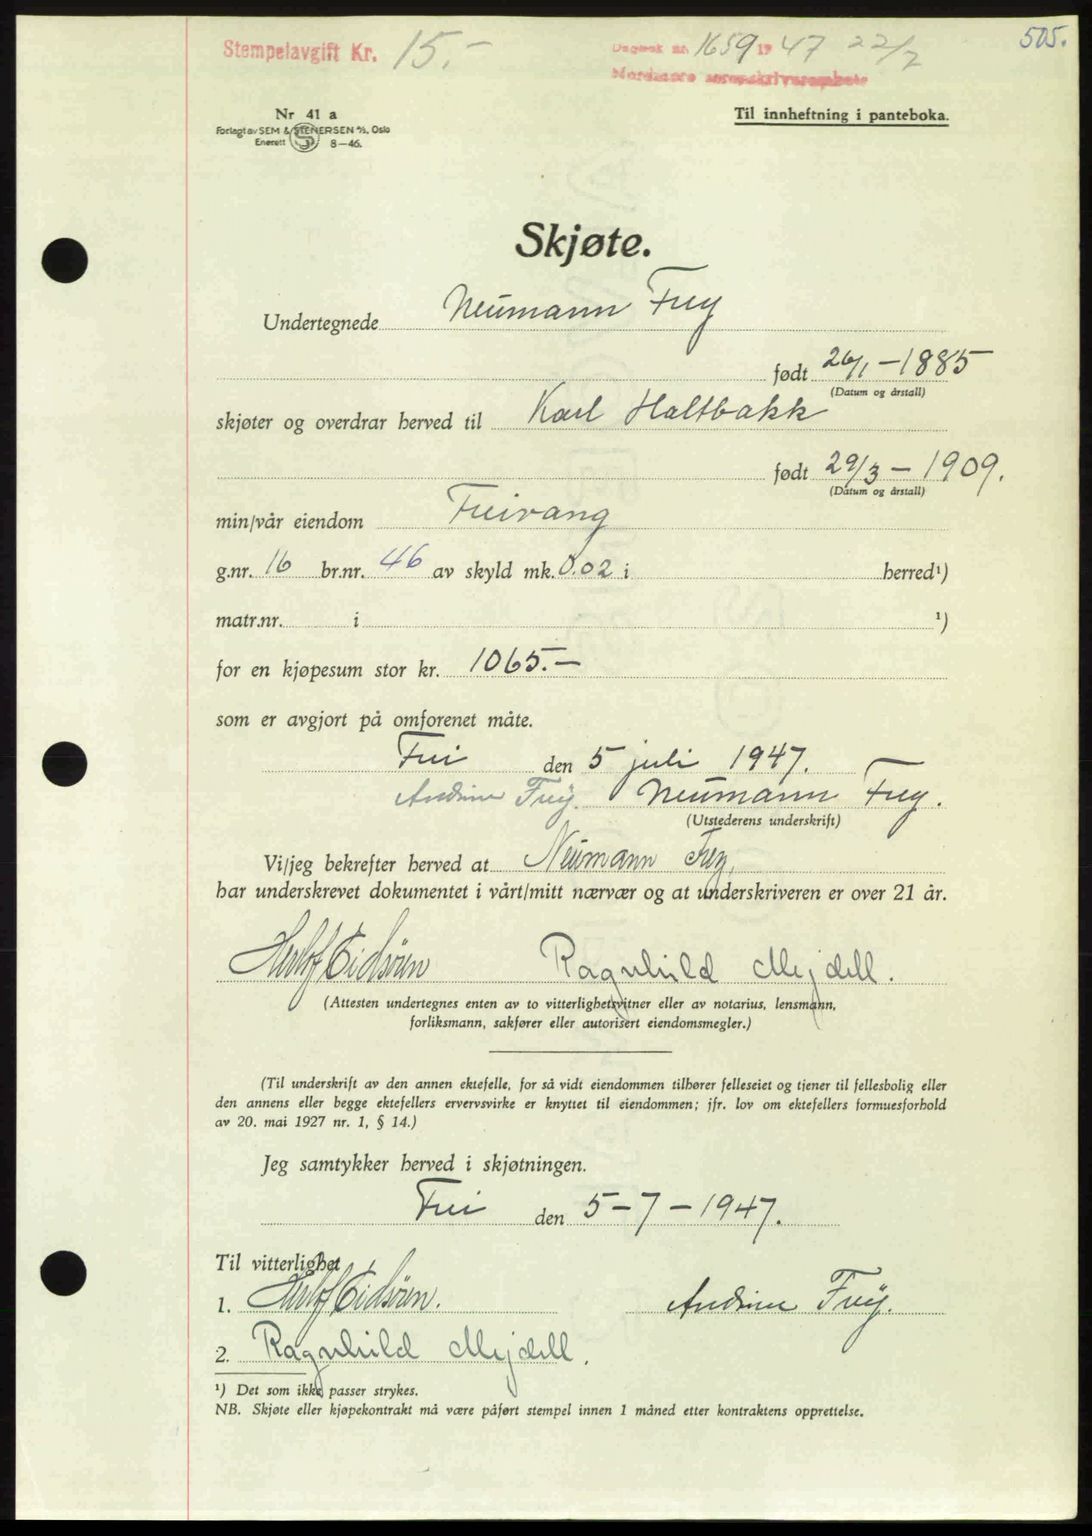 505.
Stempelavgift Kr. 15.-
Dagbok nr. 1659 1947 22/7
Nordmøre sorenskriverembete
Nr 41 a
Forlagt av SEM & STENERSEN A/S, Oslo
Enerett 8-46.
Til innheftning i panteboka.
Skjøte.
Undertegnede Neumann Frey
født 26/1-1885
(Datum og årstall)
skjøter og overdrar herved til Karl Haltbakk
født 29/3 - 1909.
(Datum og årstall)
min/vår eiendom Freivang
g.nr. 16 br.nr. 46 av skyld mk. 0.02 i herred¹)
matr.nr. i ¹)
for en kjøpesum stor kr. 1065.-
som er avgjort på omforenet måte.
Frei den 5 juli 1947.
Andrine Frey. Neumann Frey.
(Utstederens underskrift)
Vi/jeg bekrefter herved at Neumann Frey,
har underskrevet dokumentet i vårt/mitt nærvær og at underskriveren er over 21 år.
Eidsören Ragnhild Mejdell.
(Attesten undertegnes enten av to vitterlighetsvitner eller av notarius, lensmann,
forliksmann, sakfører eller autorisert eiendomsmegler.)
(Til underskrift av den annen ektefelle, for så vidt eiendommen tilhører felleseiet og tjener til fellesbolig eller
den annens eller begge ektefellers ervervsvirke er knyttet til eiendommen; jfr. lov om ektefellers formuesforhold
av 20. mai 1927 nr. 1, § 14.)
Jeg samtykker herved i skjøtningen.
Frei den 5-7-1947.
Til vitterlighet
1. Eidsören. Andrine Frey.
2. Ragnhild Mejdell.
¹) Det som ikke passer strykes.
NB. Skjøte eller kjøpekontrakt må være påført stempel innen 1 måned etter kontraktens opprettelse.